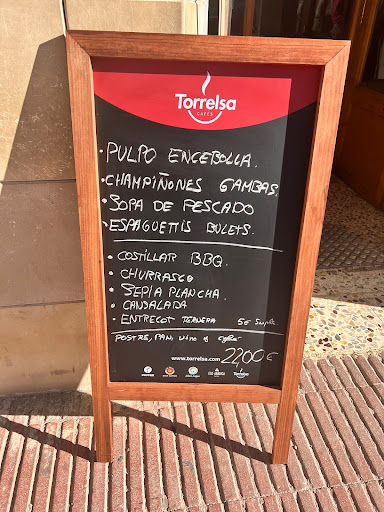 Torrelsa
CAFÉS
· PULPO ENCEBOLLA.
· CHAMPIÑONES GAMBAS.
· SOPA DE PESCADO
· ESPAGUETTIS BOLETS.
· COSTILLAR BBQ.
· CHURRASCO
· SEPIA PLANCHA.
· CANSALADA
· ENTRECOT TERNERA 5€ Suple.
POSTRE, PAN, vino y café
www.torrelsa.com 22,00€